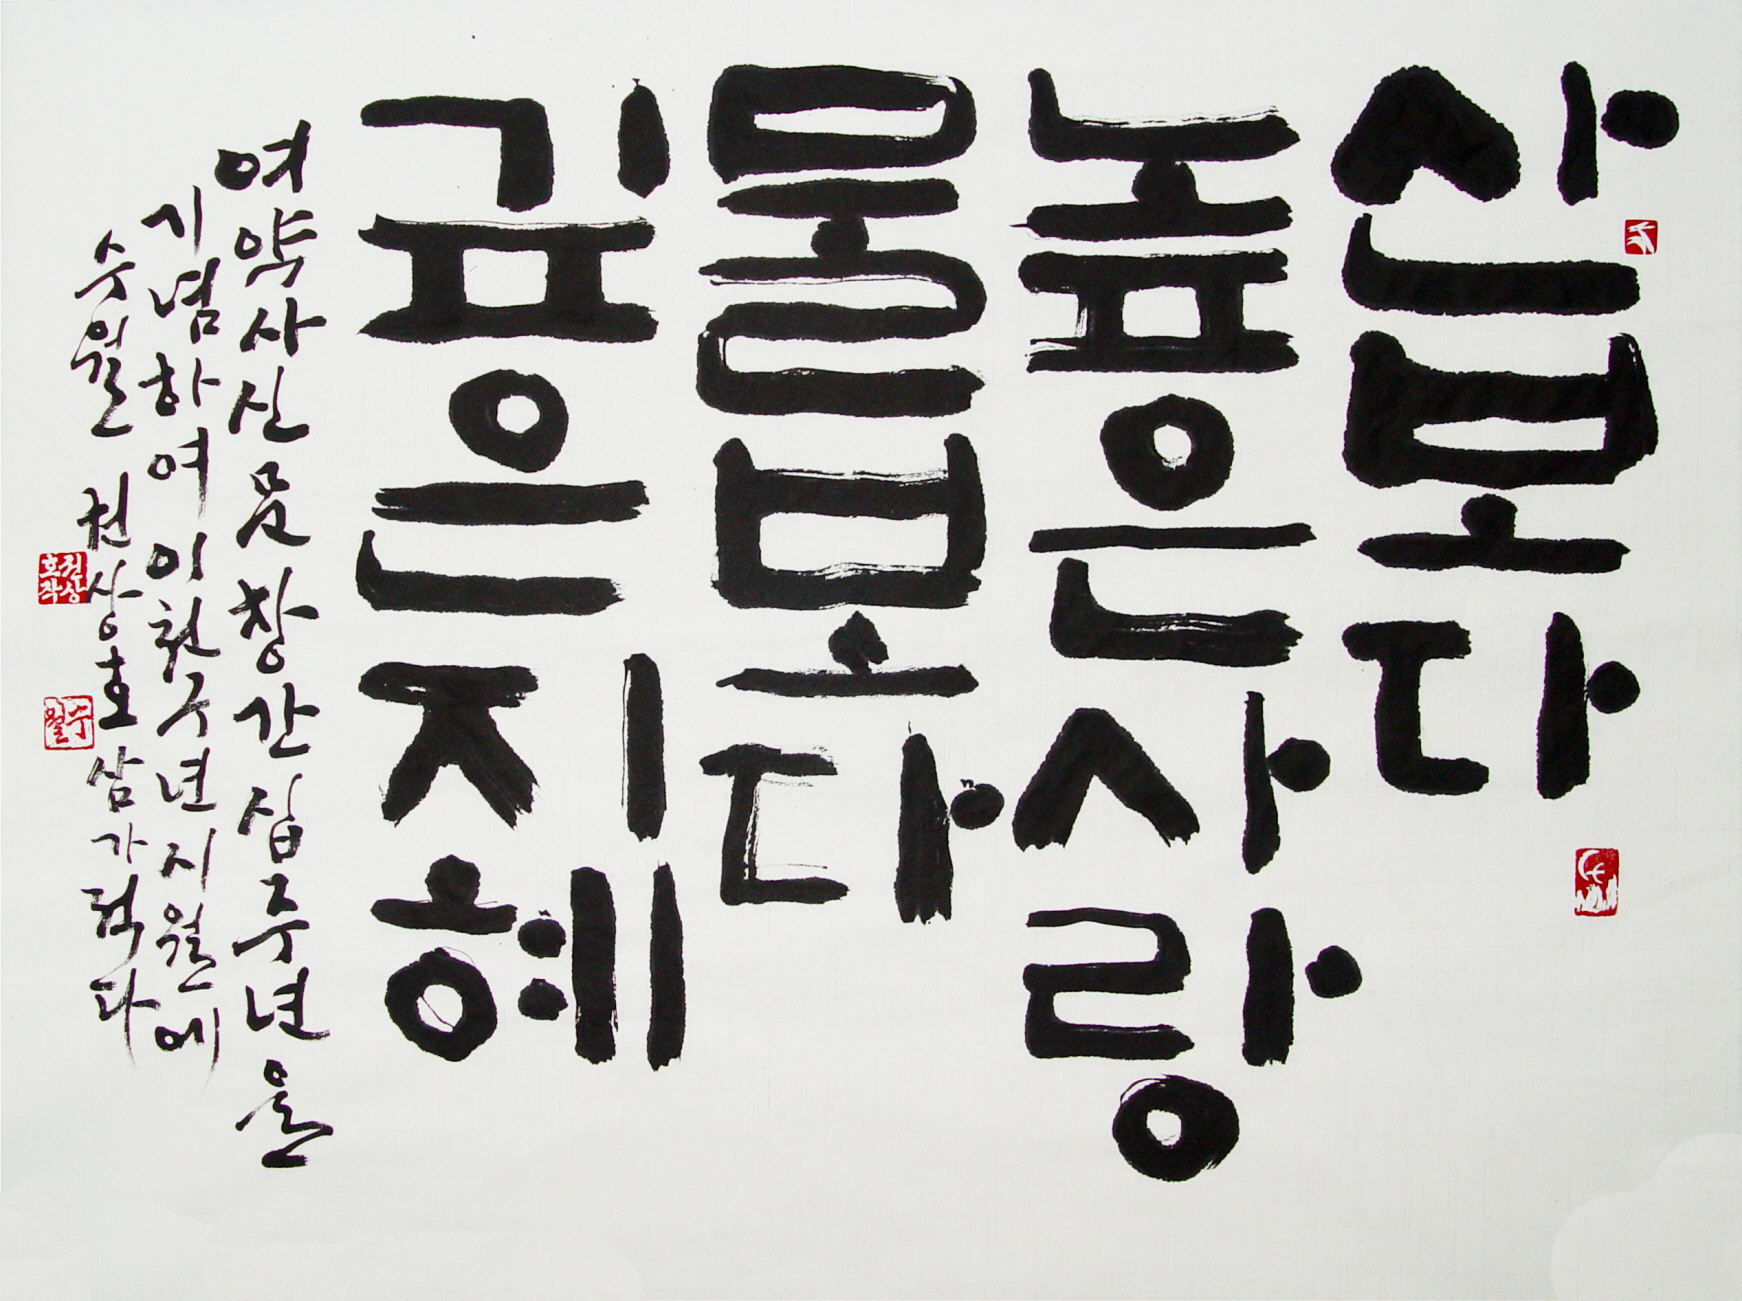 산보다
높은사랑
물보다
깊은지혜
여약사신문창간십주년을
기념하여이천구년시월에
수월 권상호삼가적다
권상호작
수월